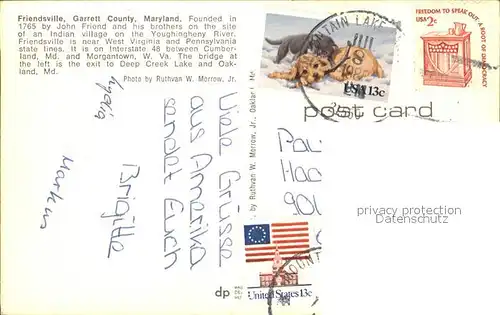 Friendsville, Garrett County, Maryland, Founded in
1765 by John Friend and his brothers on the site
of an Indian village on the Youghingheny River.
Friendsville is near West Virginia and Pennsylvania
state lines. It is on Interstate 48 between Cumber-
land, Md. and Morgantown, W. Va. The bridge at
the left is the exit to Deep Creek Lake and Oak-
land, Md.
Photo by Ruthvan W. Morrow, Jr.
USA 13c
FREEDOM TO SPEAK OUT A ROOT OF DEMOCRACY
USA 2c
post card
by Ruthvan W. Morrow, Jr., Oakland, Md.
Viele Grüsse
aus Amerika
sendet Euch
Brigitte
Lydia
Markus
privacy protection
Datenschutz
United States 13c
dp